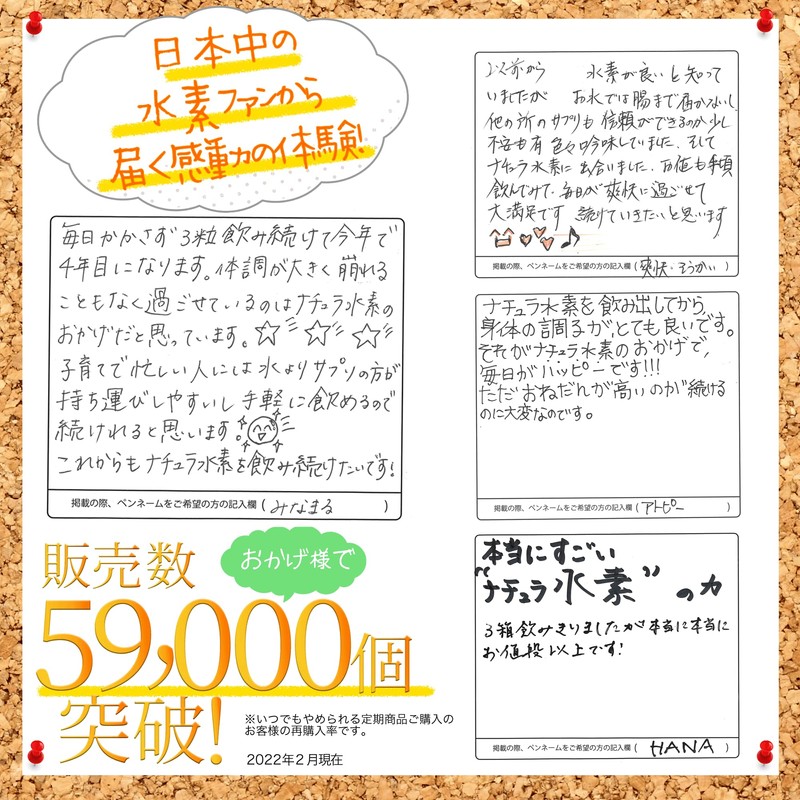 日本中の
水素ファンから
届く感動の体験!
毎日かかさず3粒飲み続けて今年で
4年目になります。体調が大きく崩れる
こともなく過ごせているのはナチュラ水素の
おかげだと思っています。☆彡☆彡☆彡
子育てで忙しい人には水よりサプリの方が
持ち運びしやすいし手軽に飲めるので
続けれると思います。
これからもナチュラ水素を飲み続けたいです!
掲載の際、ペンネームをご希望の方の記入欄(みなまる)
おかげ様で
販売数
59,000個
突破!
※いつでもやめられる定期商品ご購入の
お客様の再購入率です。
2022年2月現在
以前から 水素が良いと知って
いましたが お水では腸まで届かないし
他の所のサプリも信頼ができるのか少し
不安も有 色々吟味していました。そして
ナチュラ水素に出会いました。万値も手頃
飲んでみて、毎日が爽快に過ごせて
大満足です 続けていきたいと思います
♡♡♡♪
掲載の際、ペンネームをご希望の方の記入欄(爽快・そうかい)
ナチュラ水素を飲み出してから、
身体の調子がとても良いです。
それがナチュラ水素のおかげで、
毎日がハッピーです!!!
ただおねだんが高いのが続ける
のに大変なのです。
掲載の際、ペンネームをご希望の方の記入欄(アトピー)
本当にすごい
"ナチュラ水素"の力
3箱飲みきりましたが本当に本当に
お値段以上です!
掲載の際、ペンネームをご希望の方の記入欄(HANA)